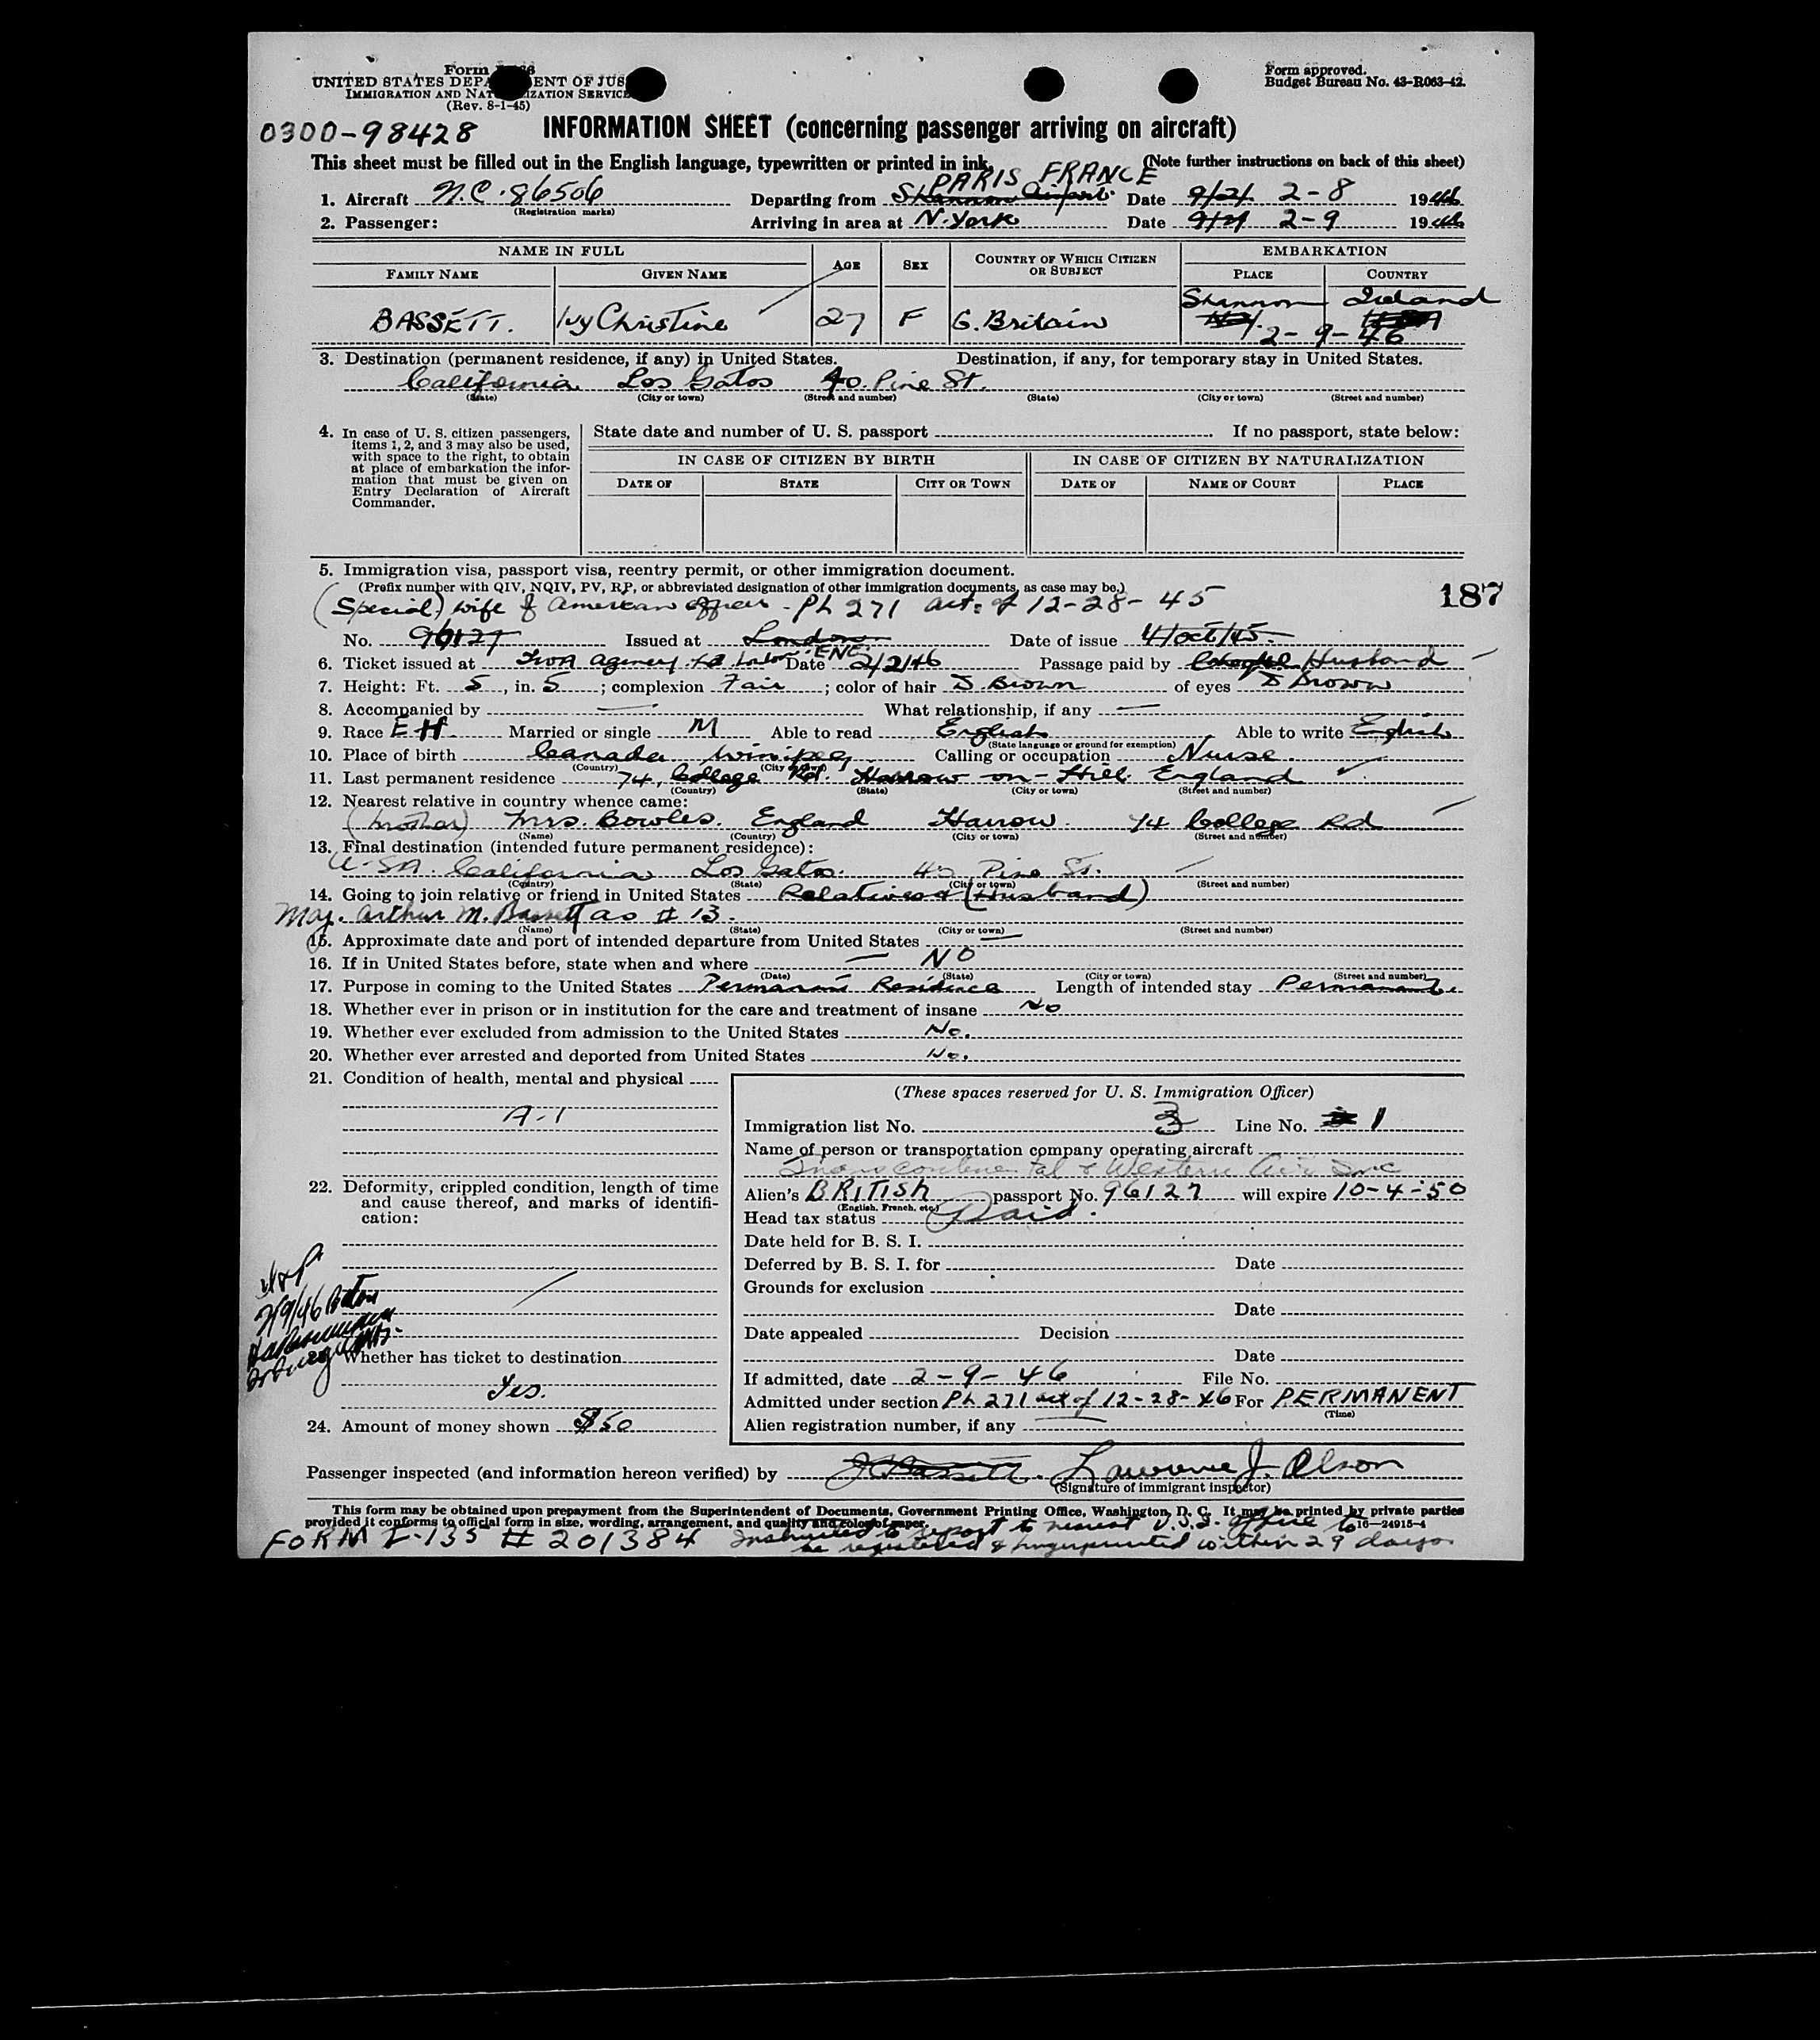 Form
UNITED STATES DEPA ENT OF JUS
IMMIGRATION AND NAT IZATION SERVICE
(Rev. 8-1-45)
Form approved.
Budget Bureau No. 43-R063-42.
0300-98428
INFORMATION SHEET (concerning passenger arriving on aircraft)
This sheet must be filled out in the English language, typewritten or printed in ink.
(Note further instructions on back of this sheet)
PARIS FRANCE
1. Aircraft N.C. 86506 Departing from Shannon Airport Date 9/2/ 2-8 1946
(Registration marks)
2. Passenger: Arriving in area at N. York Date 2-9 1946
NAME IN FULL
FAMILY NAME
GIVEN NAME
AGE
SEX
COUNTRY OF WHICH CITIZEN
OR SUBJECT
EMBARKATION
PLACE
COUNTRY
Shannon Ireland
BASSETT. Ivy Christine 27 F G. Britain
2-9-46
3. Destination (permanent residence, if any) in United States. Destination, if any, for temporary stay in United States.
California Los Gatos 40 Pine St.
(State) (City or town) (Street and number) (State) (City or town) (Street and number)
4. In case of U. S. citizen passengers,
items 1, 2, and 3 may also be used,
with space to the right, to obtain
at place of embarkation the infor-
mation that must be given on
Entry Declaration of Aircraft
Commander.
State date and number of U. S. passport . If no passport, state below:
IN CASE OF CITIZEN BY BIRTH
IN CASE OF CITIZEN BY NATURALIZATION
DATE OF STATE CITY OR TOWN DATE OF NAME OF COURT PLACE
5. Immigration visa, passport visa, reentry permit, or other immigration document.
(Prefix number with QIV, NQIV, PV, RP, or abbreviated designation of other immigration documents, as case may be.)
187
(Special) wife of American officer - PL 271 act of 12-28-45
No. 96127 Issued at London Date of issue 4/Oct/45.
6. Ticket issued at agency ENG. Date 2/2/46 Passage paid by Husband
7. Height: Ft. 5, in. 5; complexion Fair; color of hair D. Brown of eyes D Brown
8. Accompanied by — What relationship, if any —
9. Race E H Married or single M Able to read English Able to write English
(State language or ground for exemption)
10. Place of birth Canada Winipeg Calling or occupation Nurse.
(Country) (City or town)
11. Last permanent residence 74, College Rd. Harrow-on-Hill England
(Country) (State) (City or town) (Street and number)
12. Nearest relative in country whence came:
(mother) Mrs. Bowles. England Harrow. 74 College Rd
(Name) (Country) (City or town) (Street and number)
13. Final destination (intended future permanent residence):
U-SA. California Los Gatos. 40 Pine St.
(Country) (State) (City or town) (Street and number)
14. Going to join relative or friend in United States Relatives & (Husband)
Maj. Arthur M. Bassett as # 13.
(Name) (State) (City or town) (Street and number)
15. Approximate date and port of intended departure from United States —
16. If in United States before, state when and where — NO
(Date) (State) (City or town) (Street and number)
17. Purpose in coming to the United States Permanent Residence Length of intended stay Permanant.
18. Whether ever in prison or in institution for the care and treatment of insane No
19. Whether ever excluded from admission to the United States No.
20. Whether ever arrested and deported from United States No.
21. Condition of health, mental and physical
A-1
22. Deformity, crippled condition, length of time
and cause thereof, and marks of identifi-
cation:
2/9/46
Whether has ticket to destination
Yes.
24. Amount of money shown $50
(These spaces reserved for U. S. Immigration Officer)
Immigration list No. 3 Line No. 1
Name of person or transportation company operating aircraft
Transcontinental & Western Air Inc
Alien's BRITISH passport No. 96127 will expire 10-4-50
(English, French, etc.)
Head tax status Paid.
Date held for B. S. I.
Deferred by B. S. I. for Date
Grounds for exclusion
Date
Date appealed Decision
Date
If admitted, date 2-9-46 File No.
Admitted under section PL 271 act of 12-28-46 For PERMANENT
(Time)
Alien registration number, if any
Passenger inspected (and information hereon verified) by Lawrence J. Olson
(Signature of immigrant inspector)
This form may be obtained upon prepayment from the Superintendent of Documents, Government Printing Office, Washington, D. C. It may be printed by private parties
provided it conforms to official form in size, wording, arrangement, and quality and color of paper.
16—24915-4
FORM I-135 # 201384 Instructed to report to nearest U.S. office to
be registered & fingerprinted within 29 days.